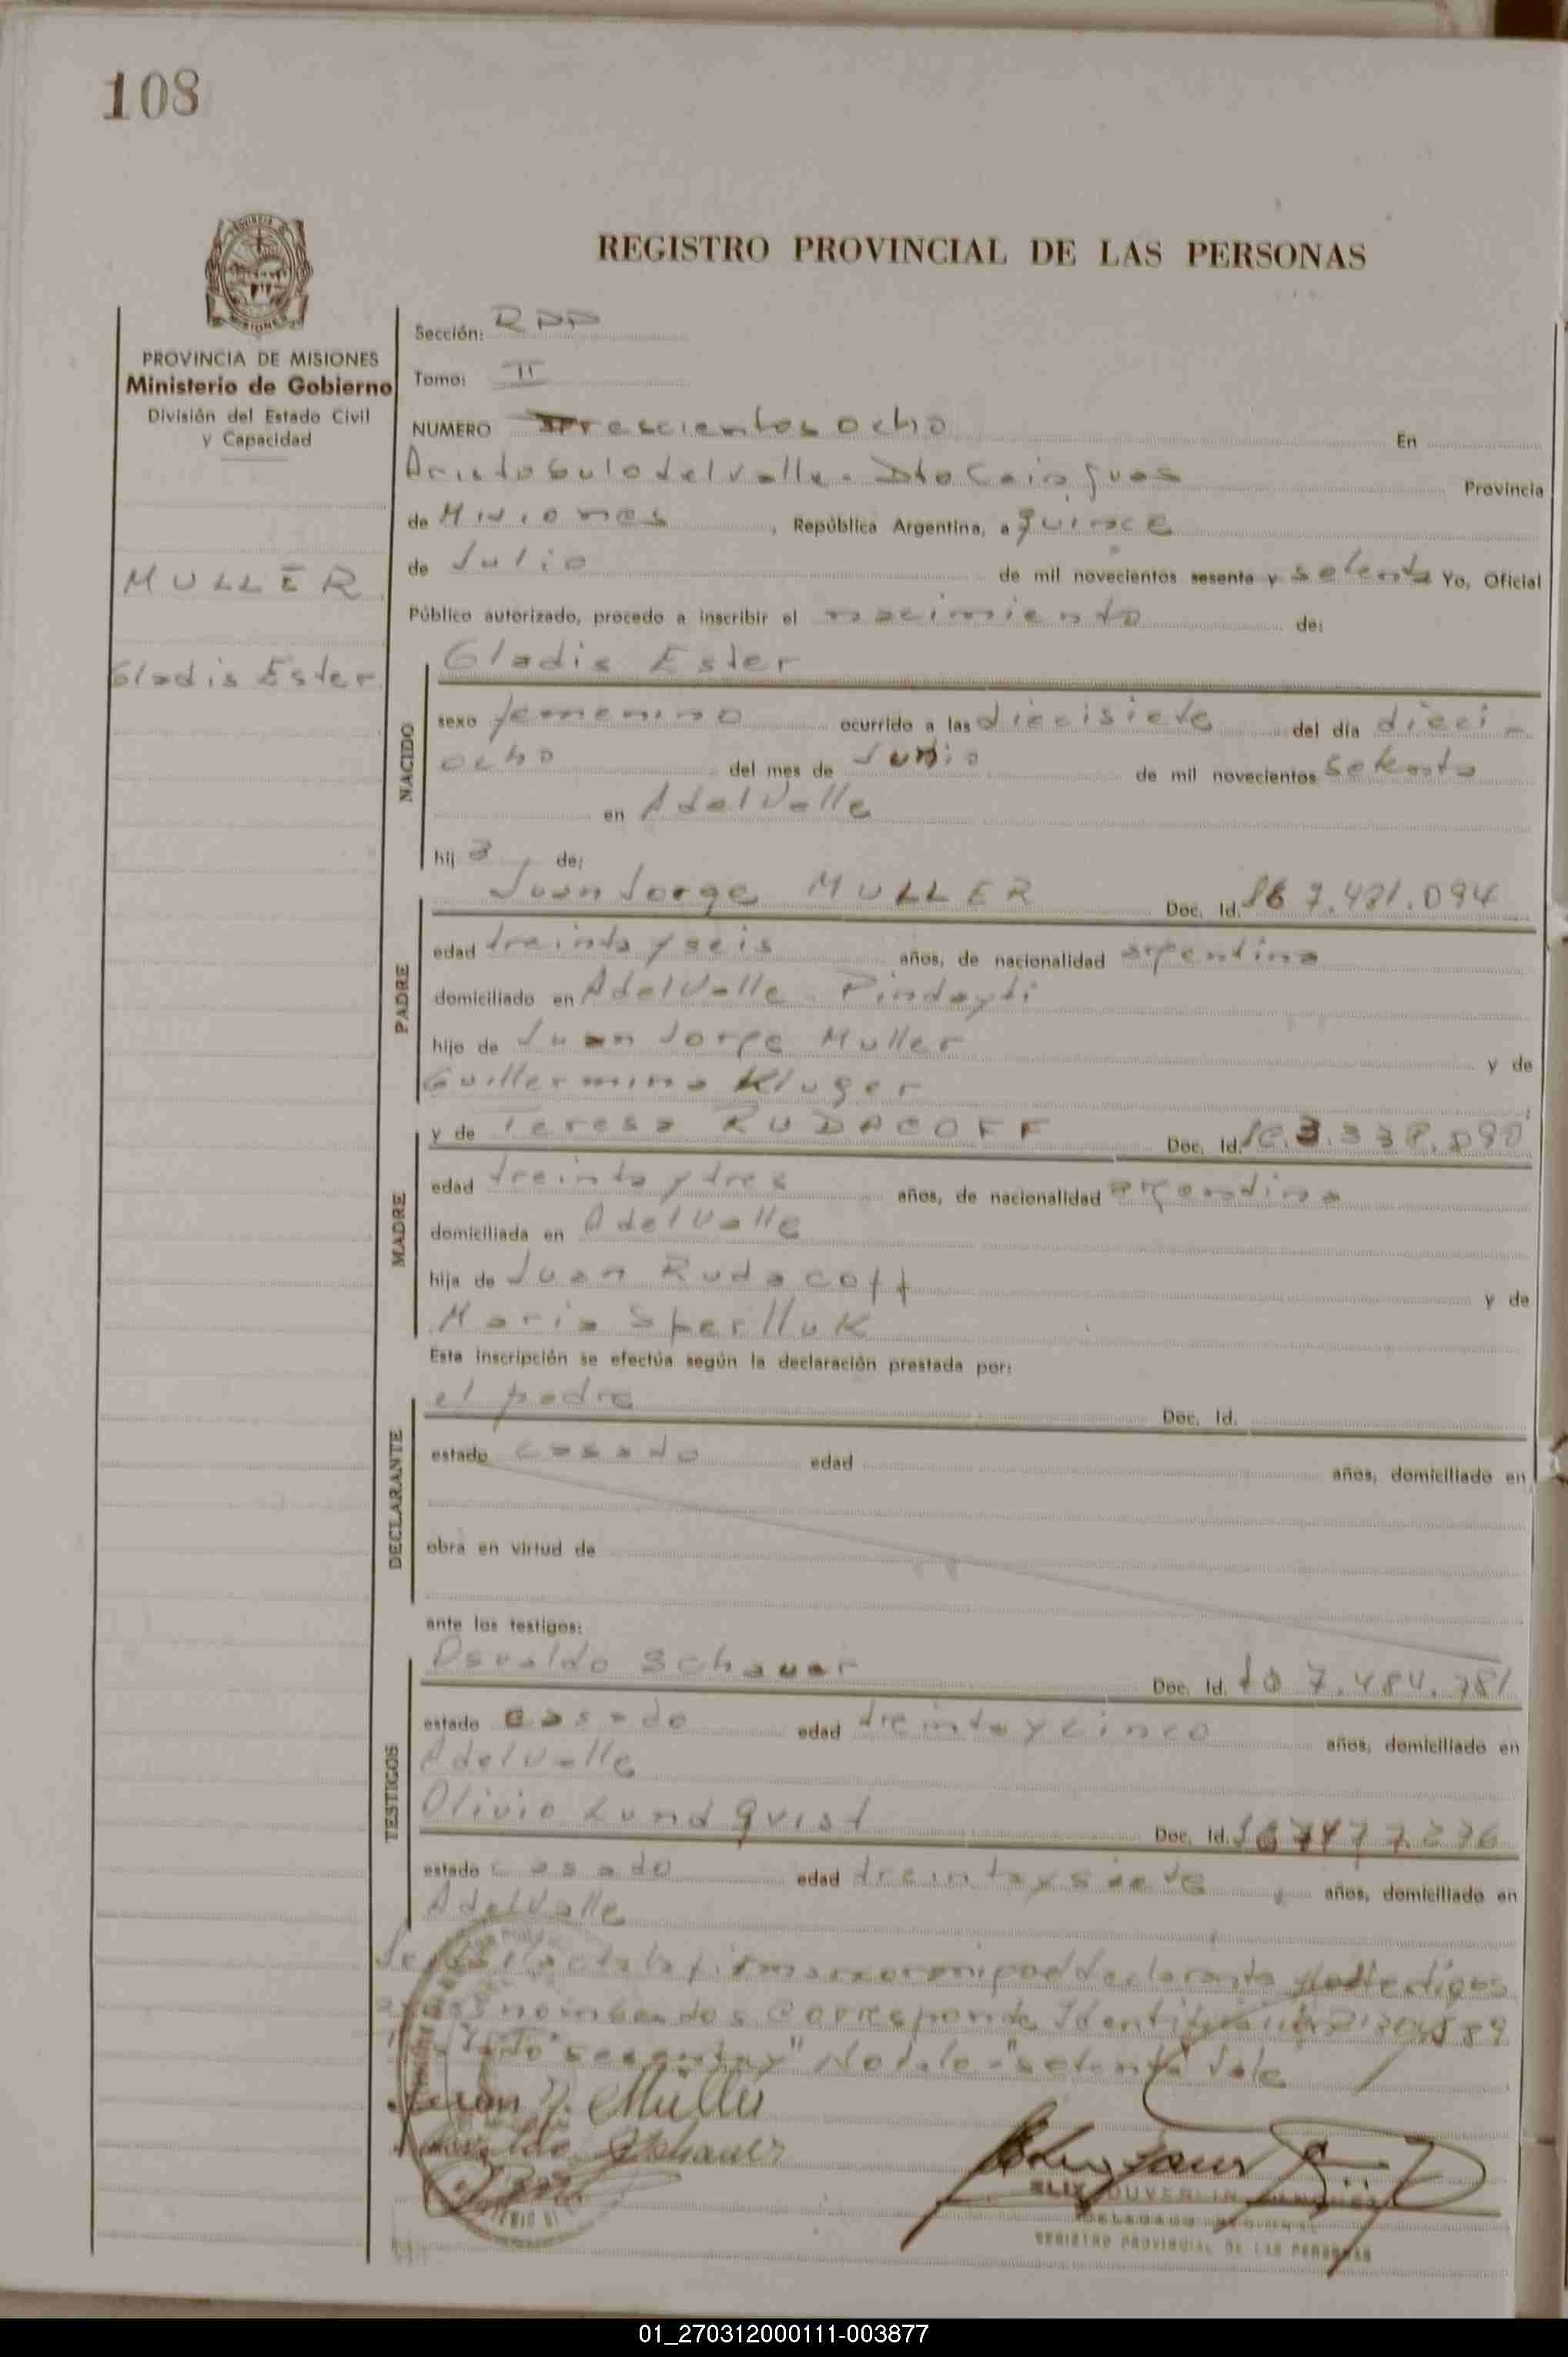 108
REGISTRO PROVINCIAL DE LAS PERSONAS
PROVINCIA DE MISIONES
Ministerio de Gobierno
División del Estado Civil
y Capacidad
MULLER
Gladis Ester
Sección: RPP
Tomo: II
NUMERO Trescientos ocho En
Aristobulo del Valle - Dto Cainguas Provincia
de Misiones, República Argentina, a quince
de Julio de mil novecientos sesenta y setenta Yo, Oficial
Público autorizado, procedo a inscribir el nacimiento de:
NACIDO
Gladis Ester
sexo femenino ocurrido a las diecisiete del día dieci-
ocho del mes de Junio de mil novecientos setenta
en A del Valle
hij a de:
PADRE
Juan Jorge MULLER Doc. Id. 7.481.094
edad treinta y seis años, de nacionalidad argentina
domiciliado en A del Valle - Pindayti
hijo de Juan Jorge Muller y de
Guillermina Kluger
MADRE
y de Teresa RUDACOFF Doc. Id.
edad treinta y tres años, de nacionalidad argentina
domiciliada en A del Valle
hija de Juan Rudacoff y de
Maria Sperlluk
Esta inscripción se efectúa según la declaración prestada por:
DECLARANTE
el padre Doc. Id.
estado casado edad años, domiciliado en
obra en virtud de
ante los testigos:
TESTIGOS
Osvaldo Schauer Doc. Id. 7.484.781
estado casado edad treinta y cinco años, domiciliado en
A del Valle
Olivio Lundqvist Doc. Id.
estado casado edad treinta y siete, años, domiciliado en
A del Valle
acta la firman conmigo el declarante y los testigos
nombrados. Corresponde Identificación
"sesenta y" No vale - "setenta" Vale
Juan J. Müller
Osvaldo Schauer
DELEGADO
REGISTRO PROVINCIAL DE LAS PERSONAS
01_270312000111-003877